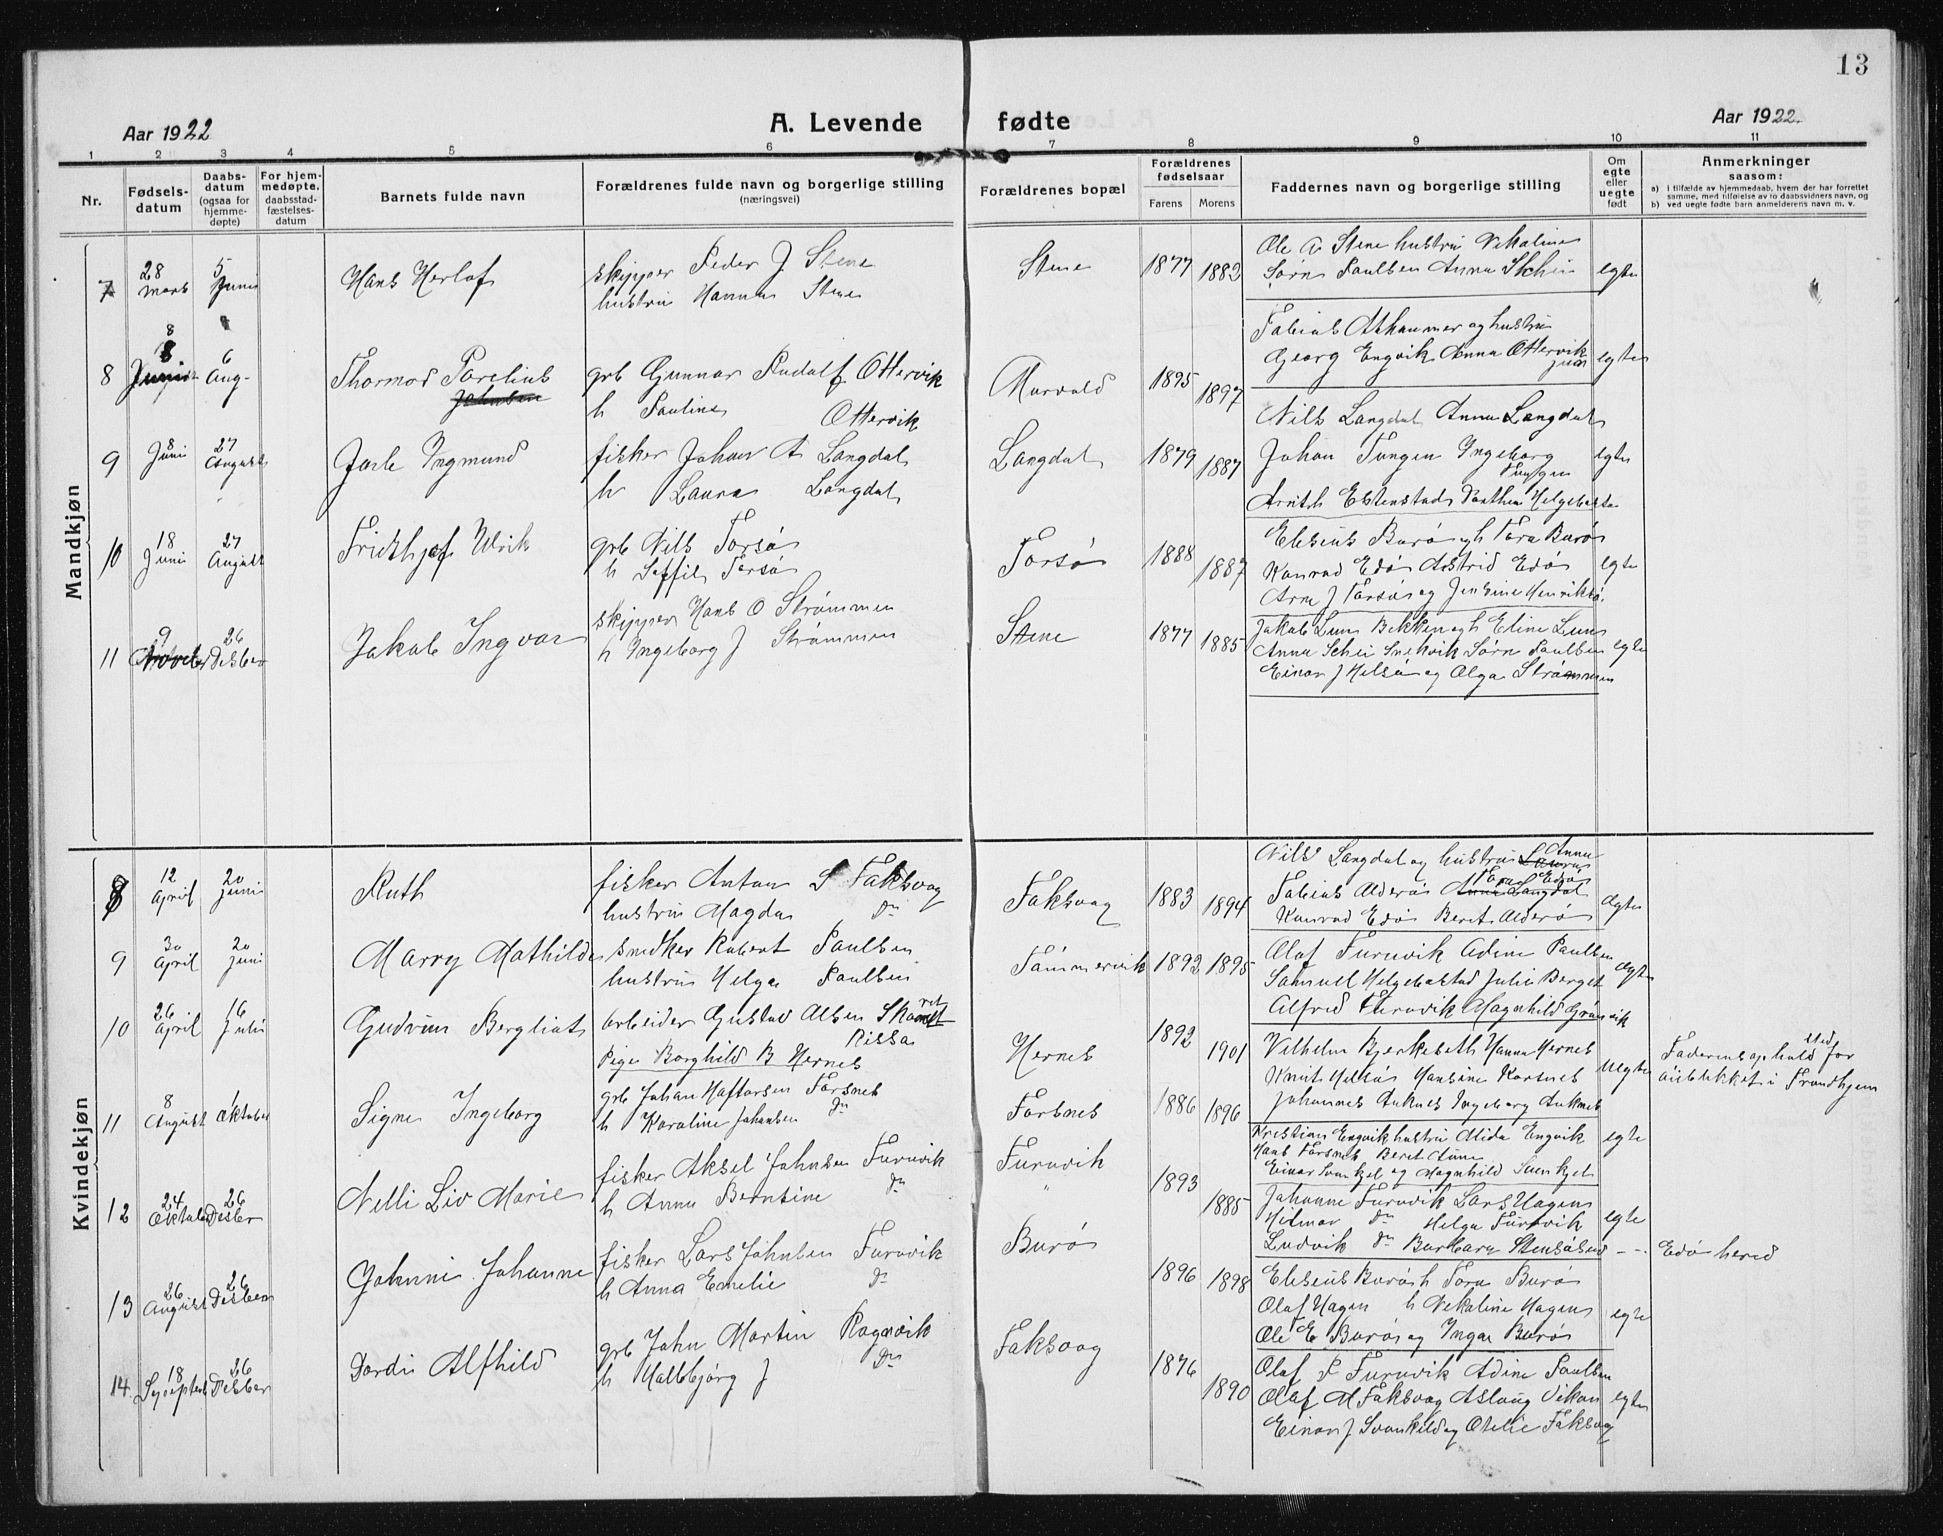 13
Aar 1922
A. Levende fødte
Aar 1922.
1 2 3 4 5 6 7 8 9 10 11
Nr.
Fødsels-
datum
Daabs-
datum
(ogsaa for
hjemme-
døpte)
For hjem-
medøpte,
daabsstad-
fæstelses-
datum
Barnets fulde navn
Forældrenes fulde navn og borgerlige stilling
(næringsvei)
Forældrenes bopæl
Forældrenes
fødselsaar
Farens Morens
Faddernes navn og borgerlige stilling
Om
egte
eller
uegte
født
Anmerkninger
saasom:
a) i tilfælde av hjemmedaab, hvem der har forrettet
samme, med tilføielse av to daabsvidners navn, og
b) ved uegte fødte barn anmelderens navn m. v.
Mandkjøn
7 28 mars 5 Juni Hans Herlof skipper Peder J Stene Stene 1877 1882 Ole A Stene hustru Nekaline egte
hustru Hanna Stene
Sørn Paulsen Anna Schei
8 8 Juni 6 Aug- Thormod Parelius grb Gunnar Rudolf Ottervik 1895 1897 egte
Johnsen
h Pauline Ottervik
Georg Engvik Anna Ottervik
9 8 Juni 27 August Jarle Ingmund fisker Johan A Langdal Langdal 1879 1887 egte
h Laura Langdal
Nils Langdal Anna Langdal
Johan Tungen Ingeborg
Tungen
10 18 Juni 27 August Fridthjof Ulrik grb Nils Forsø Forsø 1888 1887 egte
h Forsø
Elesius Burø og h Tora Burø
Konrad Edø Astrid Edø
Arne J Forsø og
11 9 Novbr 26 Desber Jakob Ingvar skipper Hans O Strømmen Stene 1877 1885 egte
h Ingeborg J Strømmen
Jakob Lund og h Eline Lund
Anna Schei Sørn Paulsen
Einar J Helsø og Olga Strømmen
Kvindekjøn
8 12 April 20 juni Ruth fisker Anton S Faksvag Faksvag 1883 1894 egte
hustru Magda Do
Nils Langdal og hustru Laura Anna
Fabius Alderø Anna Langdal
Konrad Edø Beret Alderø
9 30 April 20 juni Marry Mathilde snedker Robert Paulsen Tømmervik 1892 1895 egte
hustru Helga Paulsen
Olaf Furuvik Adine Paulsen
Samuel Helgebostad Julie Berget
Alfred Furuvik Magnhild Grønvik
10 26 April 16 Juli Gudrun Bergliot Arbeider Gustav Olsen Hernes 1892 1901 uegte
Rissa
Pige Borghild B Hernes
Vilhelm Bjerkeseth Hanna Hernes
Knut Helsø Hansine Korsnes
Johannes Auknes Ingeborg Auknes
Faderens opholdsted for
øieblikket i Trondhjem
11 8 August Oktober Signe Ingeborg grb Johan Haftorsen Forsnes Forsnes 1886 1896 egte
h Karoline Johansen Do
Kristian Engvik hustru Alida Engvik
Hans Forsnes Beret Aune
12 24 Oktober 26 Desbr Nelli Liv Marie fisker Aksel Johnsen Furuvik Furuvik 1893 1885 egte
h Anna Bernsine Do
Johanne Furuvik Lars Hagen
Hilmar Do Helga Furuvik
Ludvik Do
13 26 August 26 Desber Johanne fisker Lars Johnsen Furuvik Burø 1896 1898 egte
h Anna Emelie Do
Elesius Burø h Tora Burø
Olaf Hagen h Nekaline Hagen
Ole E Burø og Inga Burø
Edø herred
14 18 26 Desber Dordi Alfhild grb John Martin Ragnvik Faksvag 1876 1890 egte
J Do
Olaf P Furuvik Adine Paulsen
Olaf M Faksvag Aslaug Vikan
Einar J Otelie Faksvag